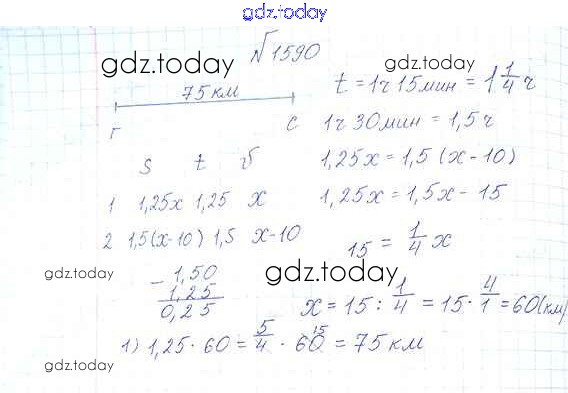 gdz.today
№1590
gdz.today gdz.today
75 км
t = 1ч 15 мин = 1 1/4 ч
Г С
1ч 30 мин = 1,5 ч
S t v
1,25x = 1,5 (x - 10)
1 1,25x 1,25 x
1,25x = 1,5x - 15
2 1,5(x-10) 1,5 x-10
15 = 1/4 x
gdz.today
gdz.today
- 1,50
1,25
0,25
x = 15 : 1/4 = 15 · 4/1 = 60(км)
1) 1,25 · 60 = 5/4 · 60 15 = 75 км
gdz.today gdz.today